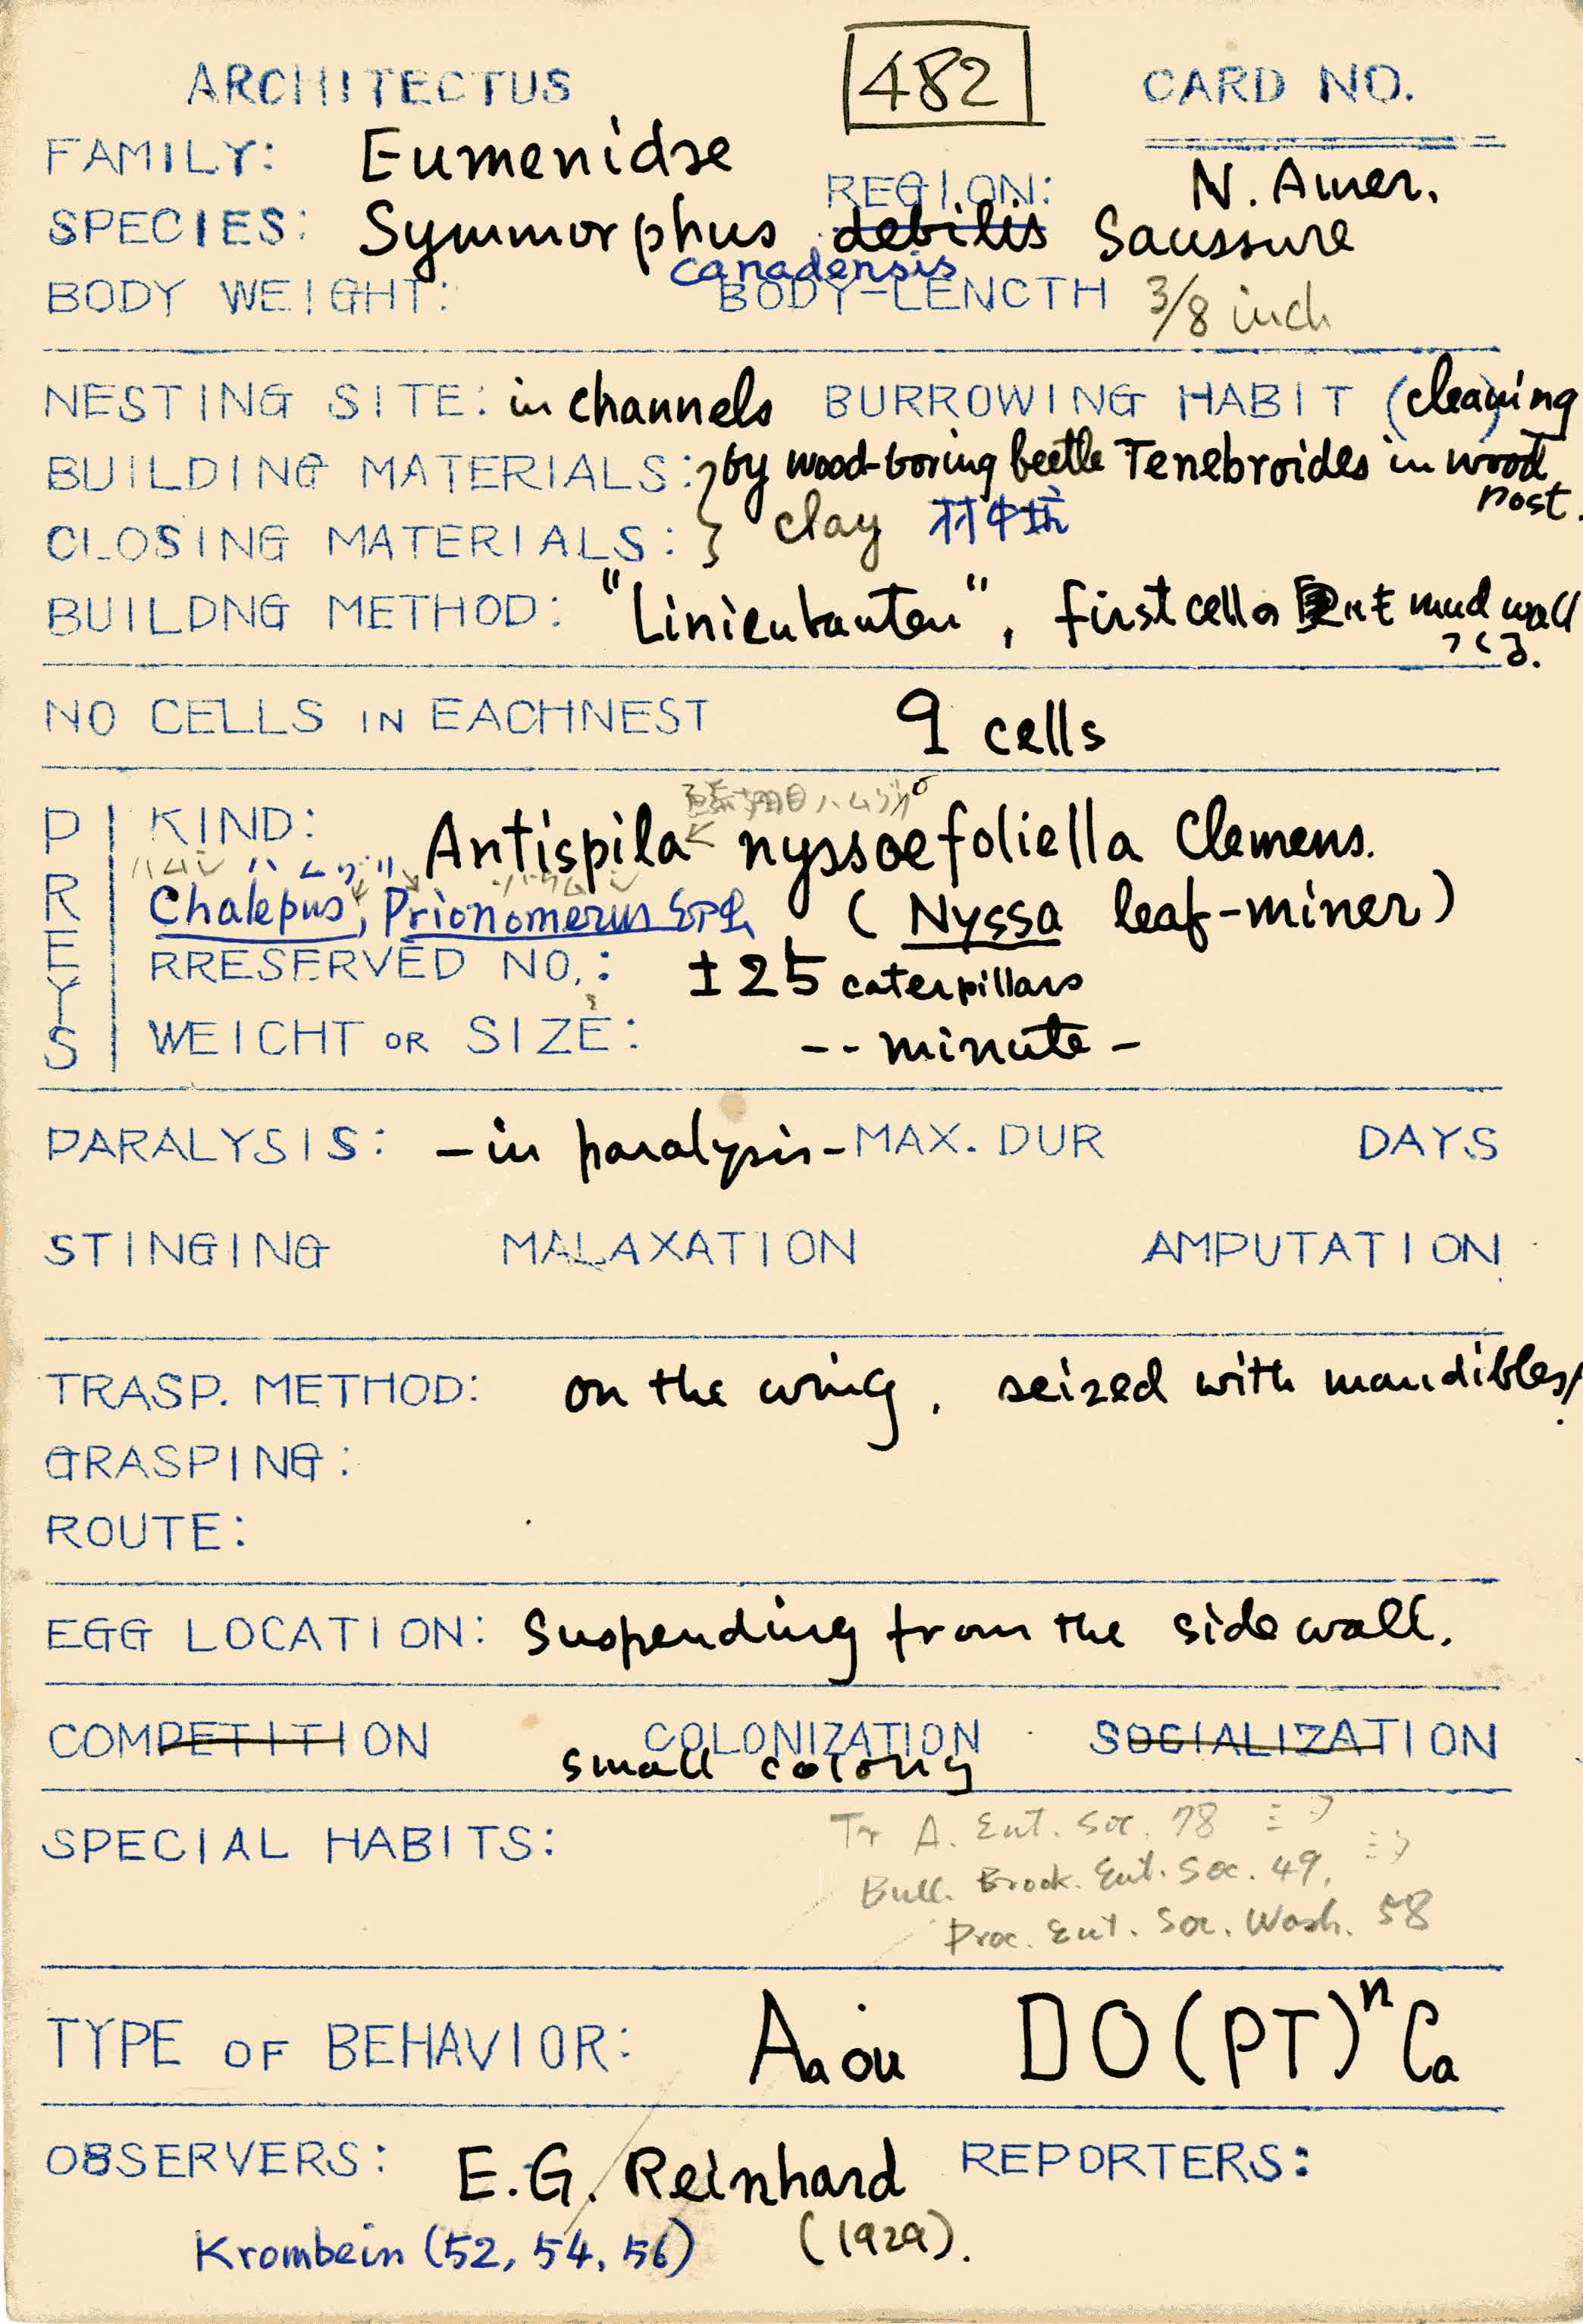 ARCHITECTUS 482 CARD NO.
FAMILY: Eumenidae REGION: N. Amer.
SPECIES: Symmorphus debilis Saussure
canadensis
BODY WEIGHT: BODY-LENGTH 3/8 inch
NESTING SITE: in channels BURROWING HABIT (cleaning)
BUILDING MATERIALS: by wood-boring beetle Tenebroides in wood
post.
CLOSING MATERIALS: clay 材中坑
BUILDNG METHOD: "Linienbauten", first cell mud wall
つくる.
NO CELLS IN EACHNEST 9 cells
PREYS
KIND: Antispila nyssaefoliella Clemens.
ハムシ ハムグリ ゾウムシ
Chalepus, Prionomerus spp. (Nyssa leaf-miner)
RRESERVED NO.: ±25 caterpillars
WEIGHT OR SIZE: -- minute -
PARALYSIS: - in paralysis - MAX. DUR DAYS
STINGING MALAXATION AMPUTATION
TRASP. METHOD: on the wing, seized with mandibles.
GRASPING:
ROUTE:
EGG LOCATION: Suspending from the side wall.
COMPETITION COLONIZATION SOCIALIZATION
small colony
SPECIAL HABITS: Tr A. Ent. Soc. 78
Bull. Brook. Ent. Soc. 49,
Proc. Ent. Soc. Wash. 58
TYPE OF BEHAVIOR: Aaou DO(PT)ⁿCa
OBSERVERS: E.G. Reinhard REPORTERS:
Krombein (52, 54, 56) (1929).